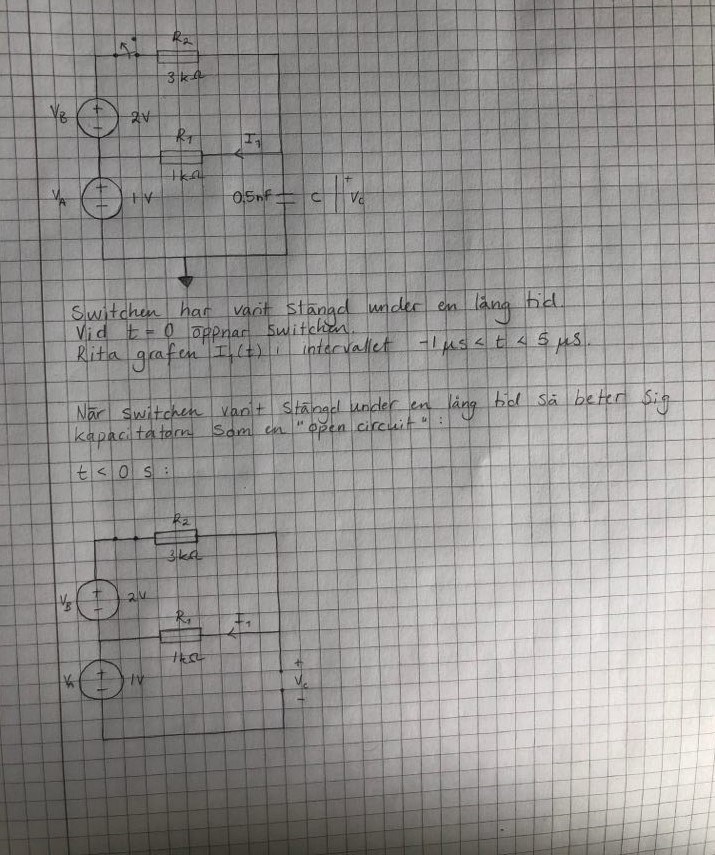 R2
3kΩ
VB + - 2V
R1
I1
1kΩ
VA + - 1V
0.5nF C + Vc
Switchen har varit stängd under en lång tid.
Vid t = 0 öppnar switchen.
Rita grafen I1(t) i intervallet -1μs < t < 5 μs.
När switchen varit stängd under en lång tid så beter sig
kapacitatorn som en "open circuit":
t < 0 s:
R2
3kΩ
VB + - 2V
R1
I1
1kΩ
VA + - 1V
+
Vc
-